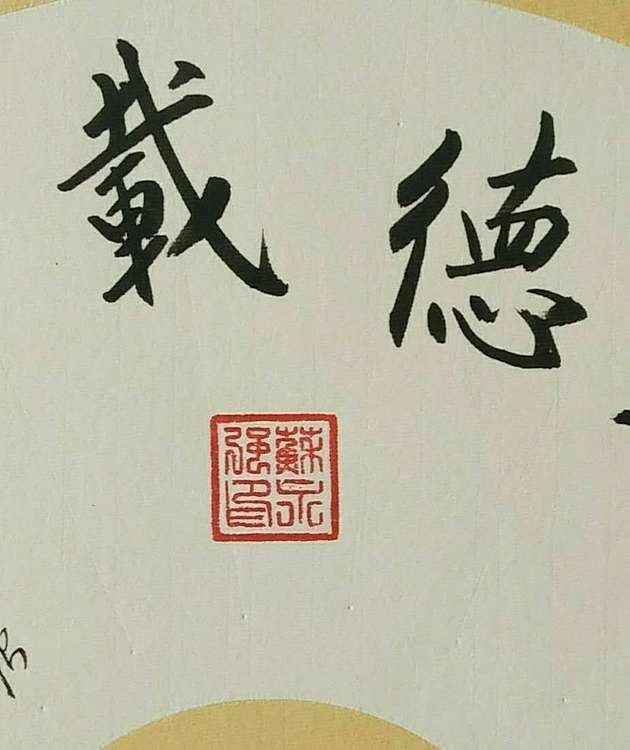 德載
蘇永強印